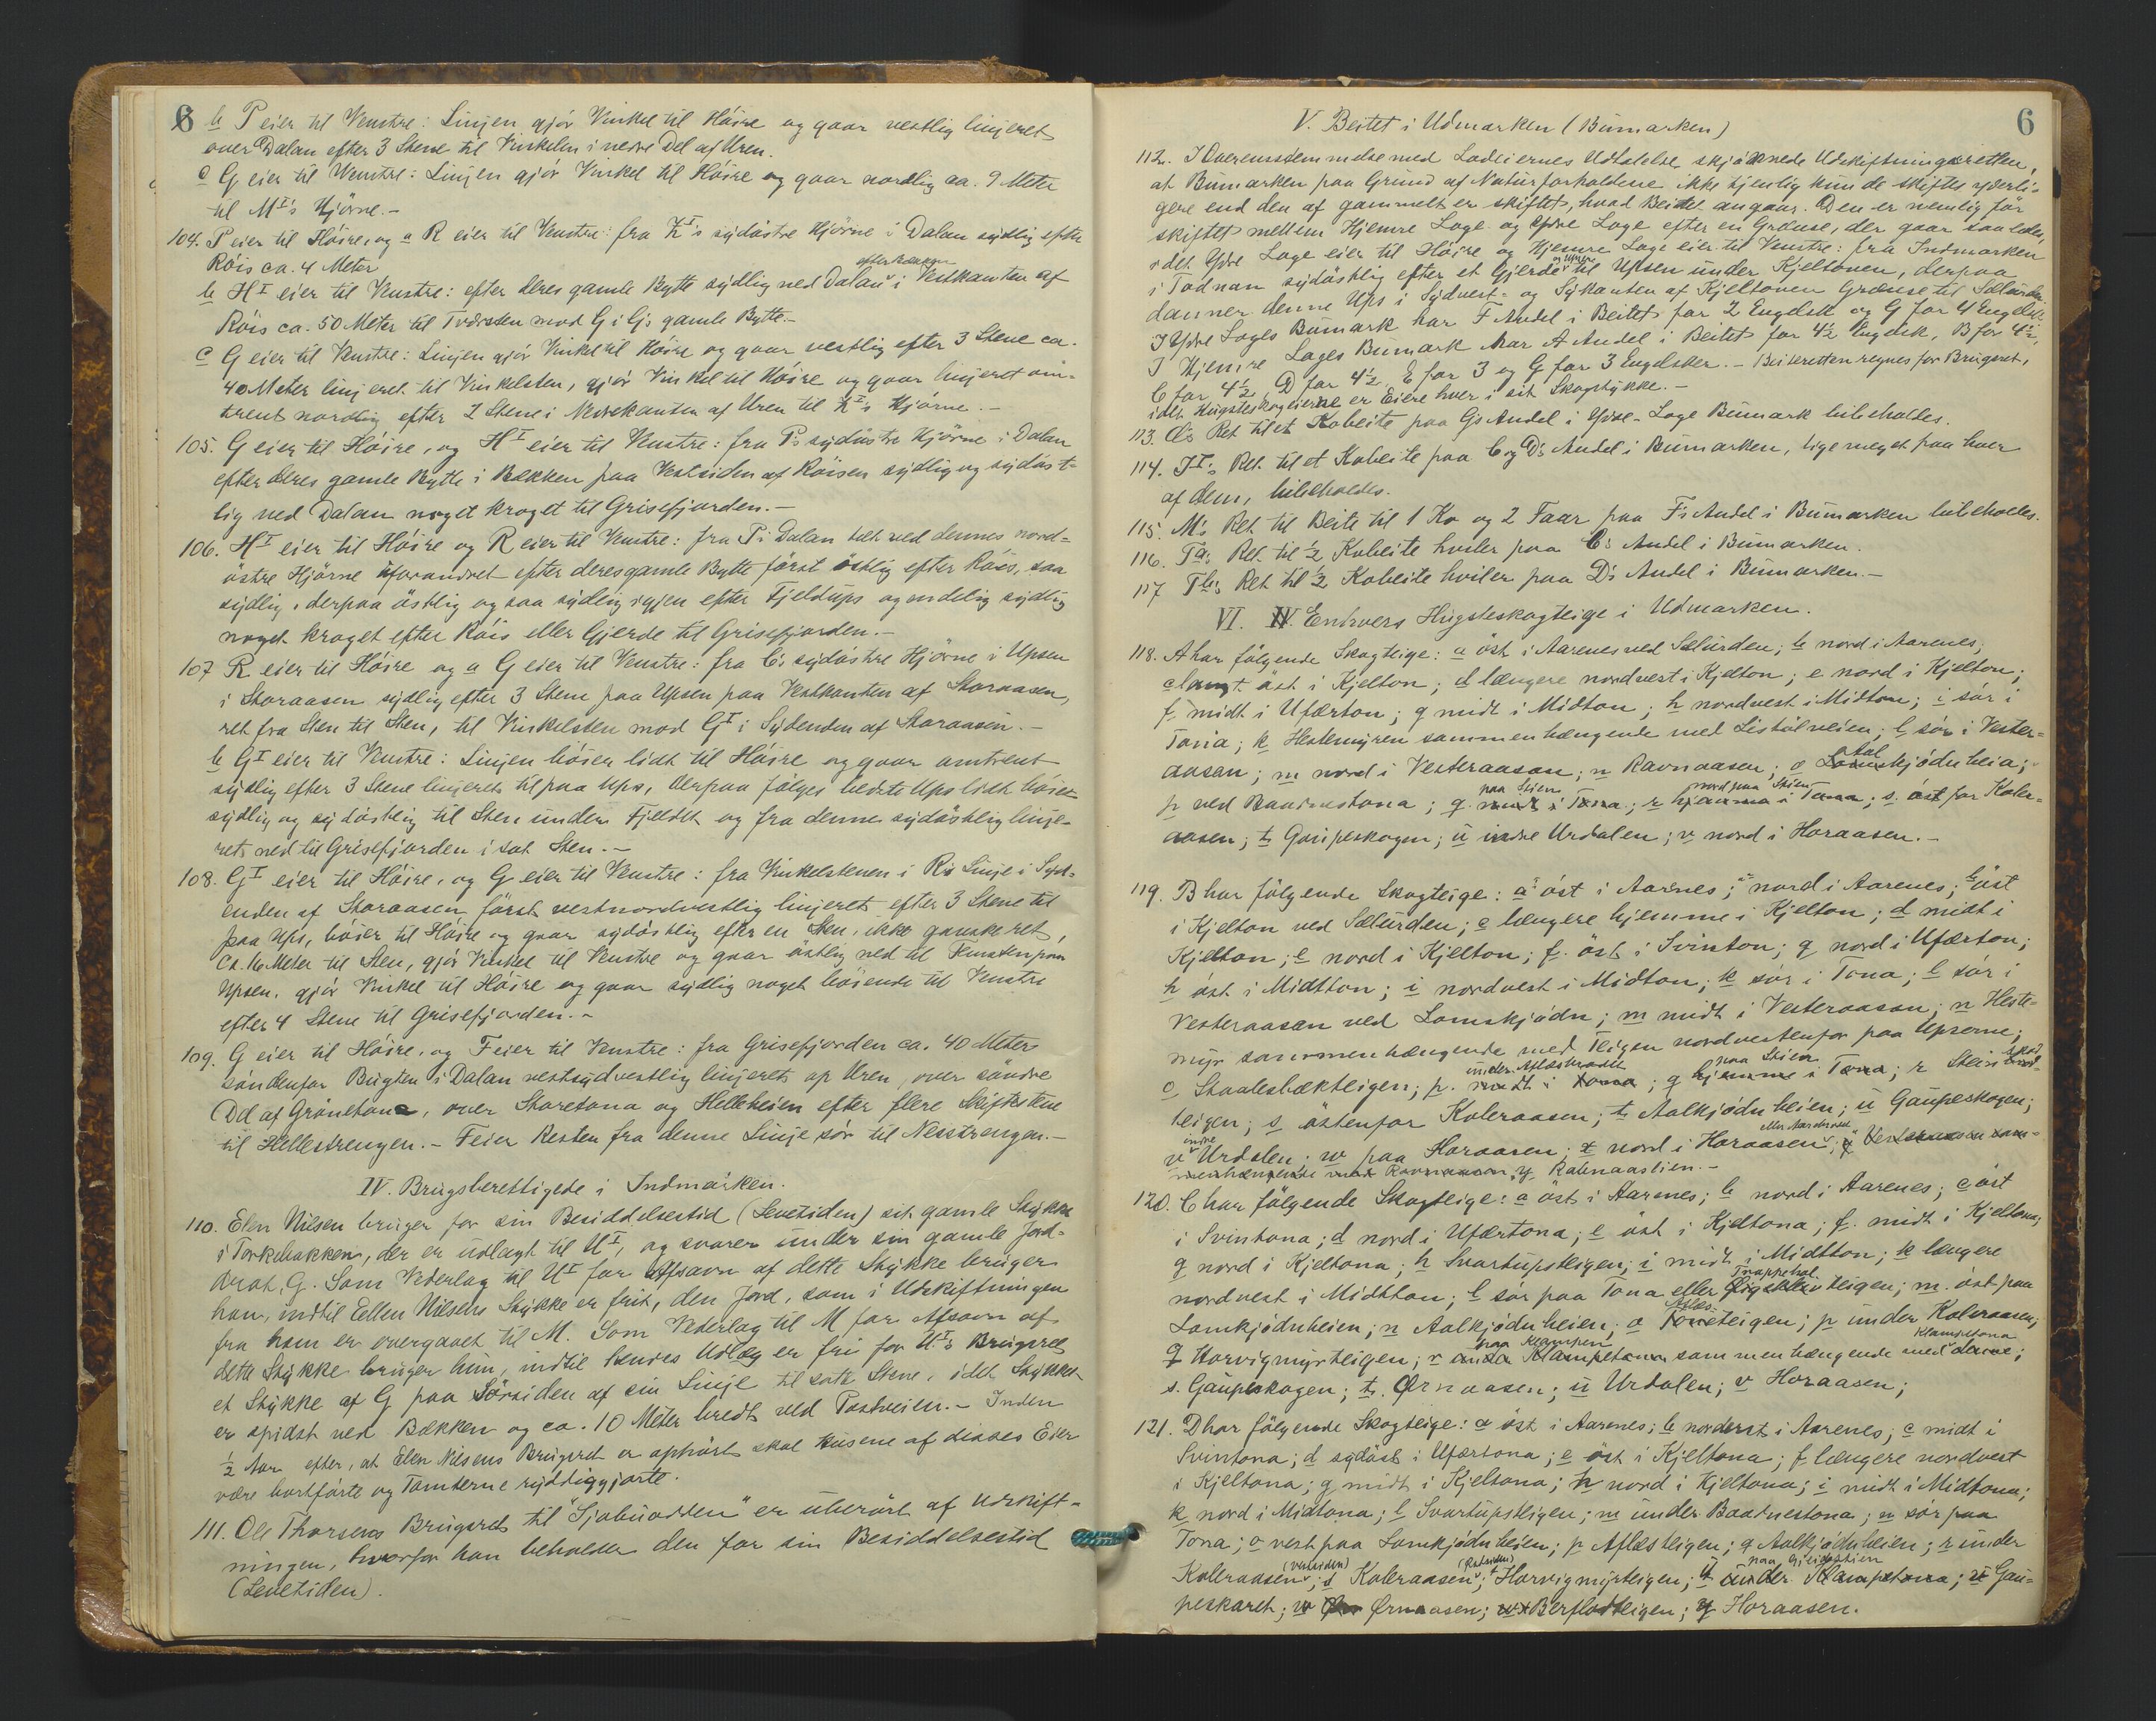 6
b P eier til Venstre: Linjen gjör Vinkel til Höire og gaar vestlig linjeret
over Dalan efter 3 Stene til Vinkelen i nedre Del af Uren.
c G eier til Venstre: Linjen gjör Vinkel til Höire og gaar nordlig ca. 9 Meter
til M I's Hjörne.-
104. P eier til Höire, og a R eier til Venstre: fra K I's sydöstre Hjörne i Dalan sydlig efter
Röis ca. 4 Meter
efter Bækken
b H I eier til Venstre: efter deres gamle Bytte sydlig ned Dalan i Vestkanten af
Röis ca. 50 Meter til Tværsten mod G i G's gamle Bytte.-
c G eier til Venstre: Linjen gjör Vinkel til Höire og gaar vestlig efter 3 Stene ca.
40 Meter linjeret til Vinkelsten, gjör Vinkel til Höire og gaar linjeret om-
trent nordlig efter 2 Stene i Nedrekanten af Uren til K I's Hjörne.-
105. G eier til Höire, og H I eier til Venstre: fra P's sydöstre Hjörne i Dalan
efter deres gamle Bytte i Bækken paa Vestsiden af Röisen sydlig og sydöst-
lig ned Dalan noget kroget til Grisefjorden.-
106. H I eier til Höire og R eier til Venstre: fra P i Dalan tæt ved dennes nord-
östre Hjörne uforandret efter deres gamle Bytte först östlig efter Röis, saa
sydlig, derpaa östlig og saa sydlig igjen efter Fjeldups og endelig sydlig
noget kroget efter Röis eller Gjerde til Grisefjorden.-
107 R eier til Höire og a G eier til Venstre: fra C's sydöstre Hjörne i Upsen
i Storaasen sydlig efter 3 Stene paa Upsen paa Vestkanten af Storaasen,
ret fra Sten til Sten, til Vinkelsten mod G I i Sydenden af Storaasen.-
b G I eier til Venstre: Linjen böier lidt til Höire og gaar omtrent
sydlig efter 3 Stene linjeret til paa Ups, derpaa fölges bedste Ups lidt böiet
sydlig og sydöstlig til Sten under Fjeldet og fra denne sydöstlig linje-
ret ned til Grisefjorden i sat Sten.-
108. G I eier til Höire, og G eier til Venstre: fra Vinkelstenen i R's Linje i Syd-
enden af Storaasen först vestnordvestlig linjeret efter 3 Stene til
paa Ups, böier til Höire og gaar sydöstlig efter en Sten, ikke ganske ret,
ca. 16 Meter til Sten, gjör Vinkel til Venstre og gaar östlig ned til Stenen paa
Upsen, gjör Vinkel til Höire og gaar sydlig noget böiende til Venstre
efter 4 Stene til Grisefjorden.-
109. G eier til Höire, og F eier til Venstre: fra Grisefjorden ca. 40 Meter
söndenfor Bugten i Dalan vestsydvestlig linjeret op Uren, over söndre
Del af Grönetona, over Storetona og Helleheien efter flere Skiftestene
til Hellestrengen.- F eier Resten fra denne Linje sör til Nesstrengen.-
IV. Brugsberettigede i Indmarken.
110. Elen Nilsen bruger for sin Besiddelsestid (Levetiden) sit gamle Stykke
i Torkebakken, der er udlagt til U I, og svarer under sin gamle Jord-
drot, G. Som Vederlag til U I for Afsavn af dette Stykke bruger
han, indtil Ellen Nilsens Stykke er frit, den Jord, som i Udskiftningen
fra ham er overgaaet til M. Som Vederlag til M for Afsavn af
dette Stykke bruger hun, indtil hendes Udlæg er fri for U I's Brugsret
et Stykke af G paa Sörsiden af sin Linje til satte Stene, idet Stykket
er spidst ved Bækken og ca. 10 Meter bredt ved Postveien.- Inden
½ Aar efter, at Elen Nilsens Brugsret er ophört skal Husene af disses Eier
være bortförte og Tomterne ryddiggjorte.
111. Ole Thorsens Brugsret til "Sjobuodden" er uberört af Udskift-
ningen, hvorfor han beholder den for sin Besiddelsestid
(Levetiden).
6
V. Beitet i Udmarken (Bumarken)
112. I Overensstemmelse med Lodeiernes Udtalelse skjönnede Udskiftningsretten,
at Bumarken paa Grund af Naturforholdene ikke tjenlig kunde skiftes yderli-
gere end den af gammelt er skiftet, hvad Beitet angaar. Den er nemlig för
skiftet mellem Hjemre Loge og Ydre Loge efter en Grænse, der gaar saaledes,
idet Ydre Loge eier til Höire og Hjemre Loge eier til Venstre: fra Indmarken
i Todnan sydöstlig efter et Gjerde til Upsen under Kjeltonen, derpaa
danner denne Ups i Sydvest- og Sykanten af Kjeltonen Grænse til Sælurden.
I Ydre Loges Bumark har F Andel i Beitet for 2 Engelsk og G for 4 Engelsk.
I Hjemre Loges Bumark har A Andel i Beitet for 4½ Engelsk, B for 4½,
C for 4½, D for 4½, E for 3 og G for 3 Engelsker.- Beiteretten regnes for Brugsret,
idet Hugsteskogeierne er Eiere hver i sit Skogstykke.-
113. O's Ret til et Kobeite paa G's Andel i Ydre-Loge Bumark bibeholdes.
114. I I's Ret til et Kobeite paa C og D's Andel i Bumarken, lige meget paa hver
af dem, bibeholdes.
115. M's Ret til Beite til 1 Ko og 2 Faar paa F's Andel i Bumarken bibeholdes.
116. Ta's Ret til ½ Kobeite hviler paa C's Andel i Bumarken.
117 Tb's Ret til ½ Kobeite hviler paa D's Andel i Bumarken.-
VI. Enhvers Hugsteskogteige i Udmarken.
118. A har fölgende Skogteige: a öst i Aarenes ved Sælurden; b nord i Aarenes;
c langt öst i Kjelton; d længere nordvest i Kjelton; e nord i Kjelton;
f midt i Ufærton; g midt i Midton; h nordvest i Midton; i sör i
Tona; k Hestemyren sammenhængende med Listölveien; l sör i Vester-
aasen; m nord i Vesteraasen; n Ravnaasen; o Aalkjödnheia;
paa Stien nord paa Stien
p ved Baadnestona; q midt i Tona; r hjemme i Tona; s öst for Koler-
aasen; t Gaupeskogen; u indre Urdalen; v nord i Horaasen.-
119. B har fölgende Skogteige: a öst i Aarenes; nord i Aarenes; b öst
i Kjelton ved Sælurden; c længere hjemme i Kjelton; d midt i
Kjelton; e nord i Kjelton; f öst i Svinton; g nord i Ufærton;
h öst i Midtton; i nordvest i Midton; k sör i Tona; l sör i
Vesteraasen ved Lomskjödn; m midt i Vesteraasen; n Heste-
myr sammenhængende med Teigen nordvestenfor paa Upserne;
paa Stien
o Staalesbækteigen; p. midt i Tona; q hjemme i Tona; r Stein
teigen; s östenfor Koleraasen; t Aalkjödnheien; u Gaupeskogen;
indre
v Urdalen; w paa Horaasen; x nord i Horaasen;
y Ravnaaslien.-
120. C har fölgende Skogteige: a öst i Aarenes; b nord i Aarenes; c öst
i Svintona; d nord i Ufærtona; e öst i Kjeltona; f. midt i Kjeltona;
g nord i Kjeltona; h Svartupsteigen; i midt i Midtton; k længere
nordvest i Midtton; l sör paa Tona eller teigen; m. öst paa
Lomkjödnheien; n Aalkjödnheien; o teigen; p under Koleraasen;
paa Klampen Klampetona
q Horvigmyrteigen; r under Klampetona sammenhængende med denne;
s. Gaupeskogen; t. Ørnaasen; u Urdalen; v Horaasen;
121. D har fölgende Skogteige: a öst i Aarenes; b norderst i Aarenes; c midt i
Svintona; d sydöst i Ufærtona; e öst i Kjeltona; f længere nordvest
i Kjeltona; g midt i Kjeltona; h nord i Kjeltona; i midt i Midtona;
k nord i Midtona; l Svartupsteigen; m under Baadnestona; n sör paa
Tona; o vest paa Lomkjödnheien; p Aflæsteigen; q Aalkjödnheien; r under
Koleraasen; s Koleraasen; t Horvigmyrteigen; u under Klampetona; v Gau-
peskaret; w Ørnaasen; x Berflodteigen; y Horaasen.